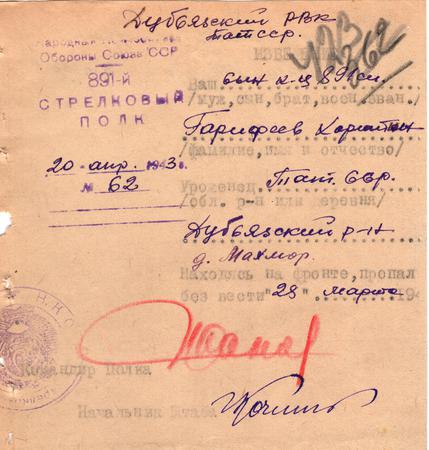 Дубьязский РВК
Татсср.
Народный
Обороны Союза ССР
891-й
СТРЕЛКОВЫЙ
ПОЛК
20 апр. 1943г.
№ 62
423
262
Ваш сын к-ц 891 сп.
/муж, сын, брат, воен.зван./
Гарифеев
/фамилие, имя и отчество/
Уроженец Тат. ССР.
/обл. р-н или деревня/
Дубьязский р-н
д. Махмор.
Находясь на фронте, пропал
без вести "28" марта 194
Командир Полка
Начальник Штаба
Н.К.О.